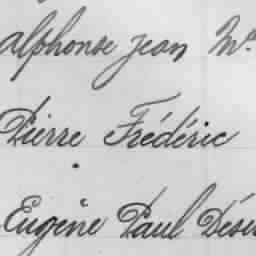 alphonse jean M.
Pierre Frédéric
Eugène Paul Dési